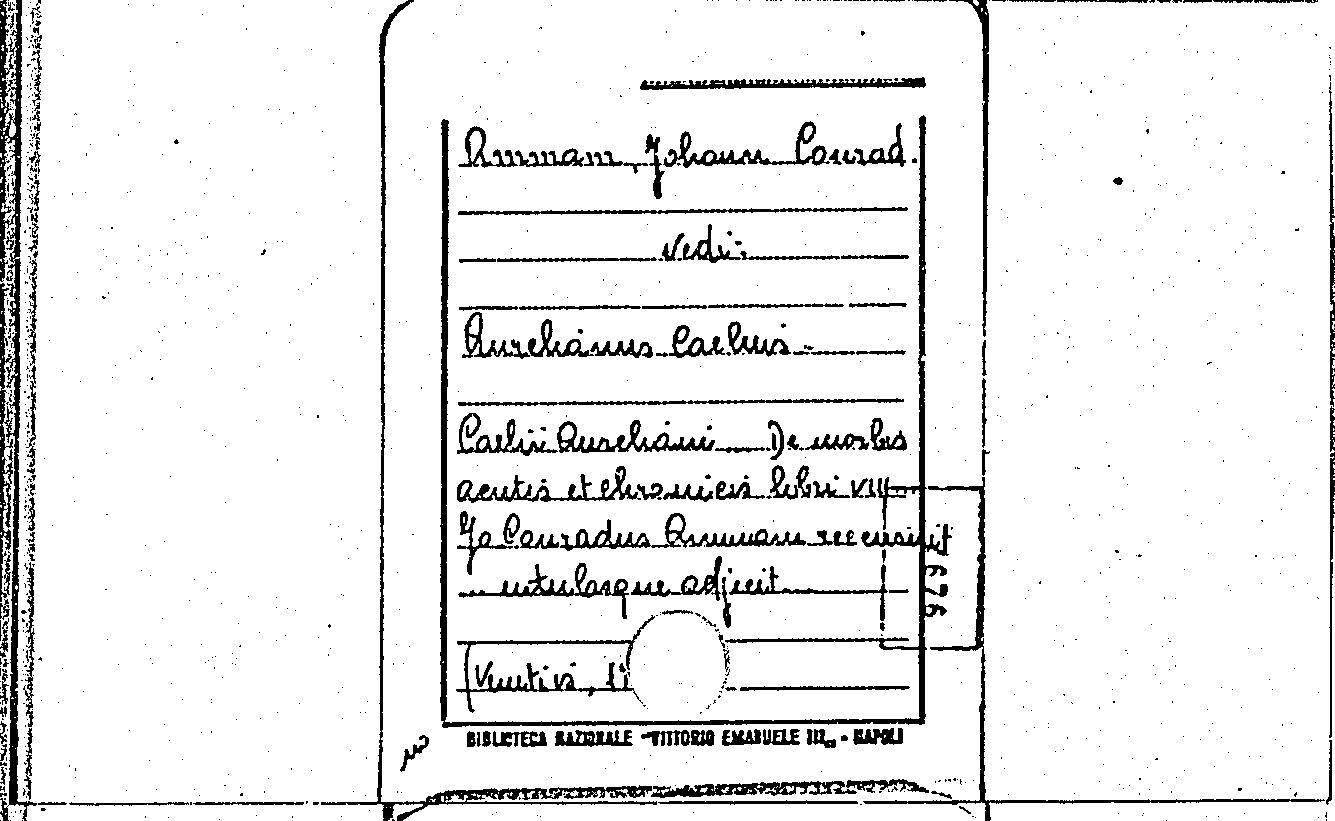 Amman, Johann Conrad.
Vedi:
Aurelianus Caelius -
Caelii Aureliani ... De morbis
acutis et chronicis libri VIII
Jo Conradus Amman recensuit
... notulasque adjecit
(Venetiis, 1
BIBLIOTECA NAZIONALE "VITTORIO EMANUELE III" - NAPOLI